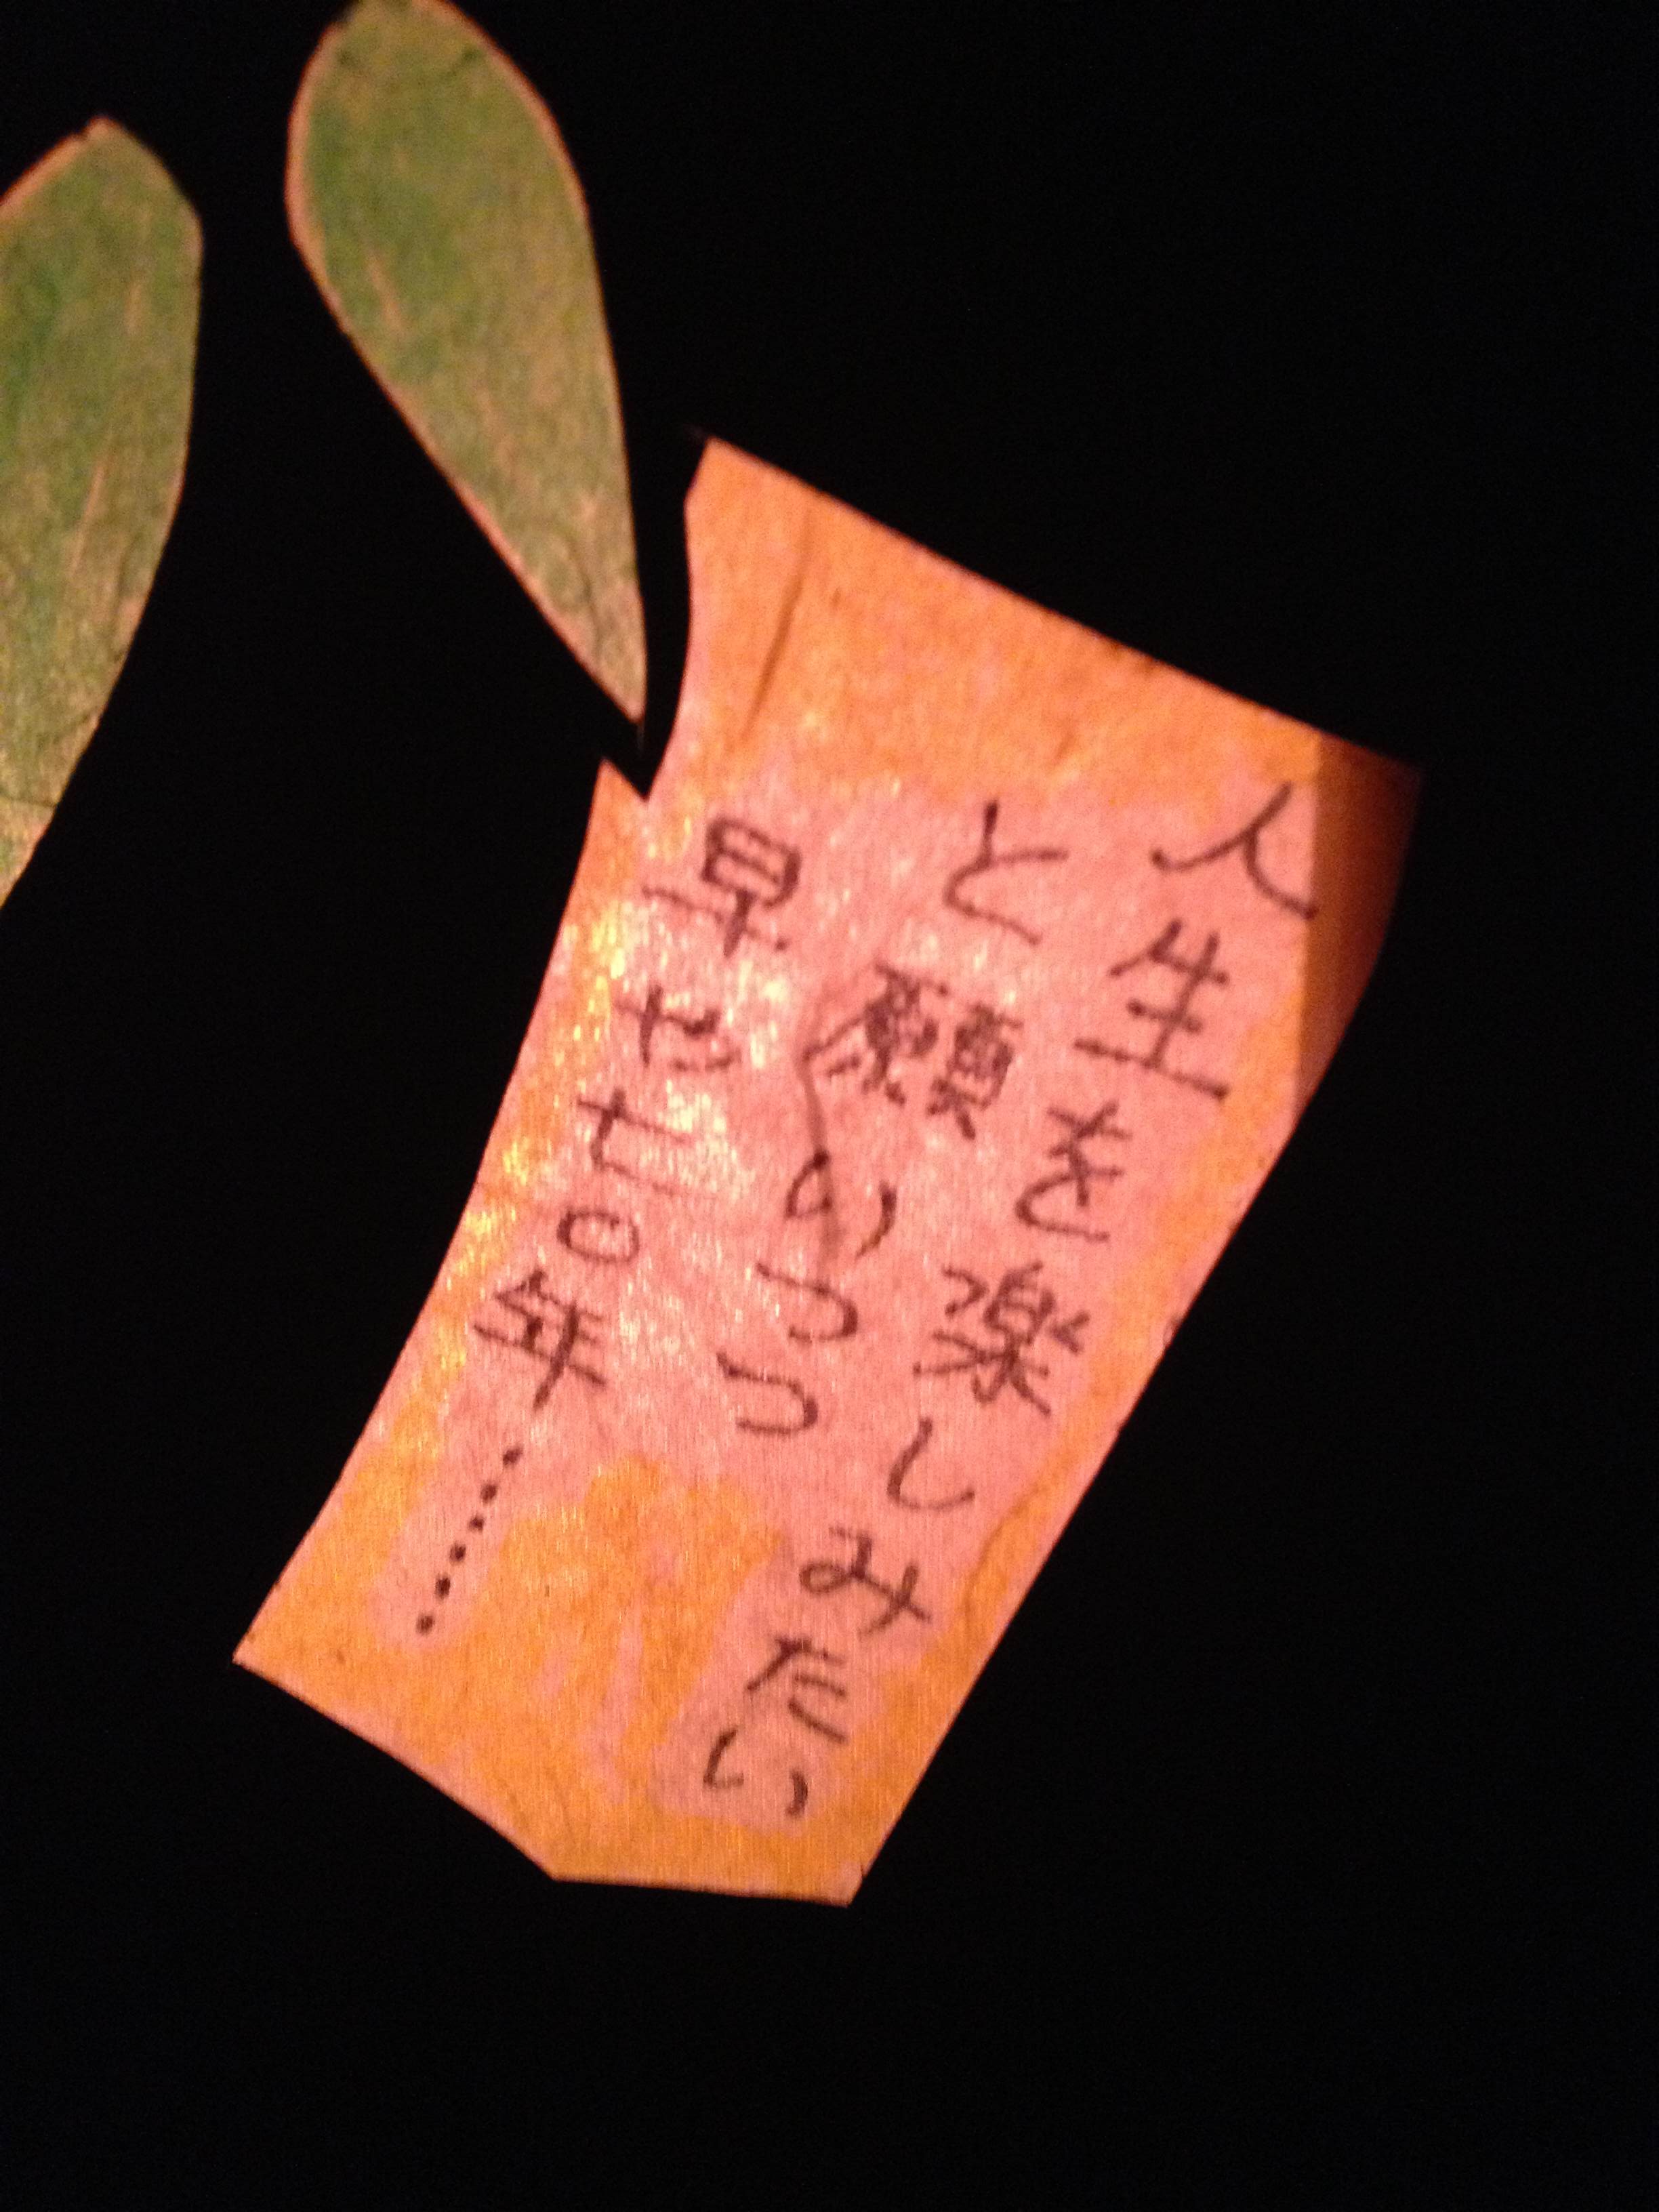 人生を楽しみたい
と願いつつ
早や七〇年……